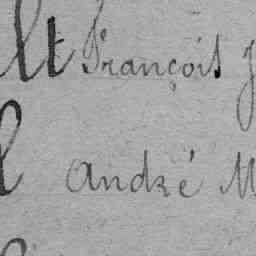 lt François J
André M